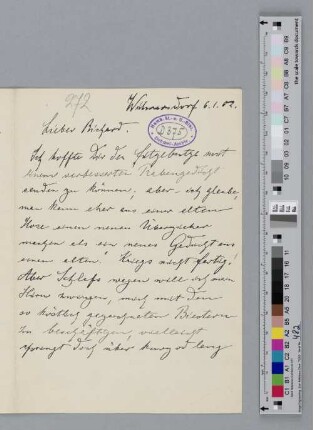 972
Wilmersdorf 6.1.02.
Lieber Richard.
Ich hoffte Dir den Fitzebutze mit
einem verbesserten
senden zu können, aber ich glaube,
man kann eher aus einer alten
Hose einen neuen Überzieher
machen als ein neues Gedicht aus
einem alten! Kriegs nicht fertig!
Aber Schlafs wegen will ich mein
Hirn zwingen, mich mit Deinen
so köstlich Biestern
zu beschäftigen, vielleicht
springt doch über kurz od lang
Dehmel-Archiv